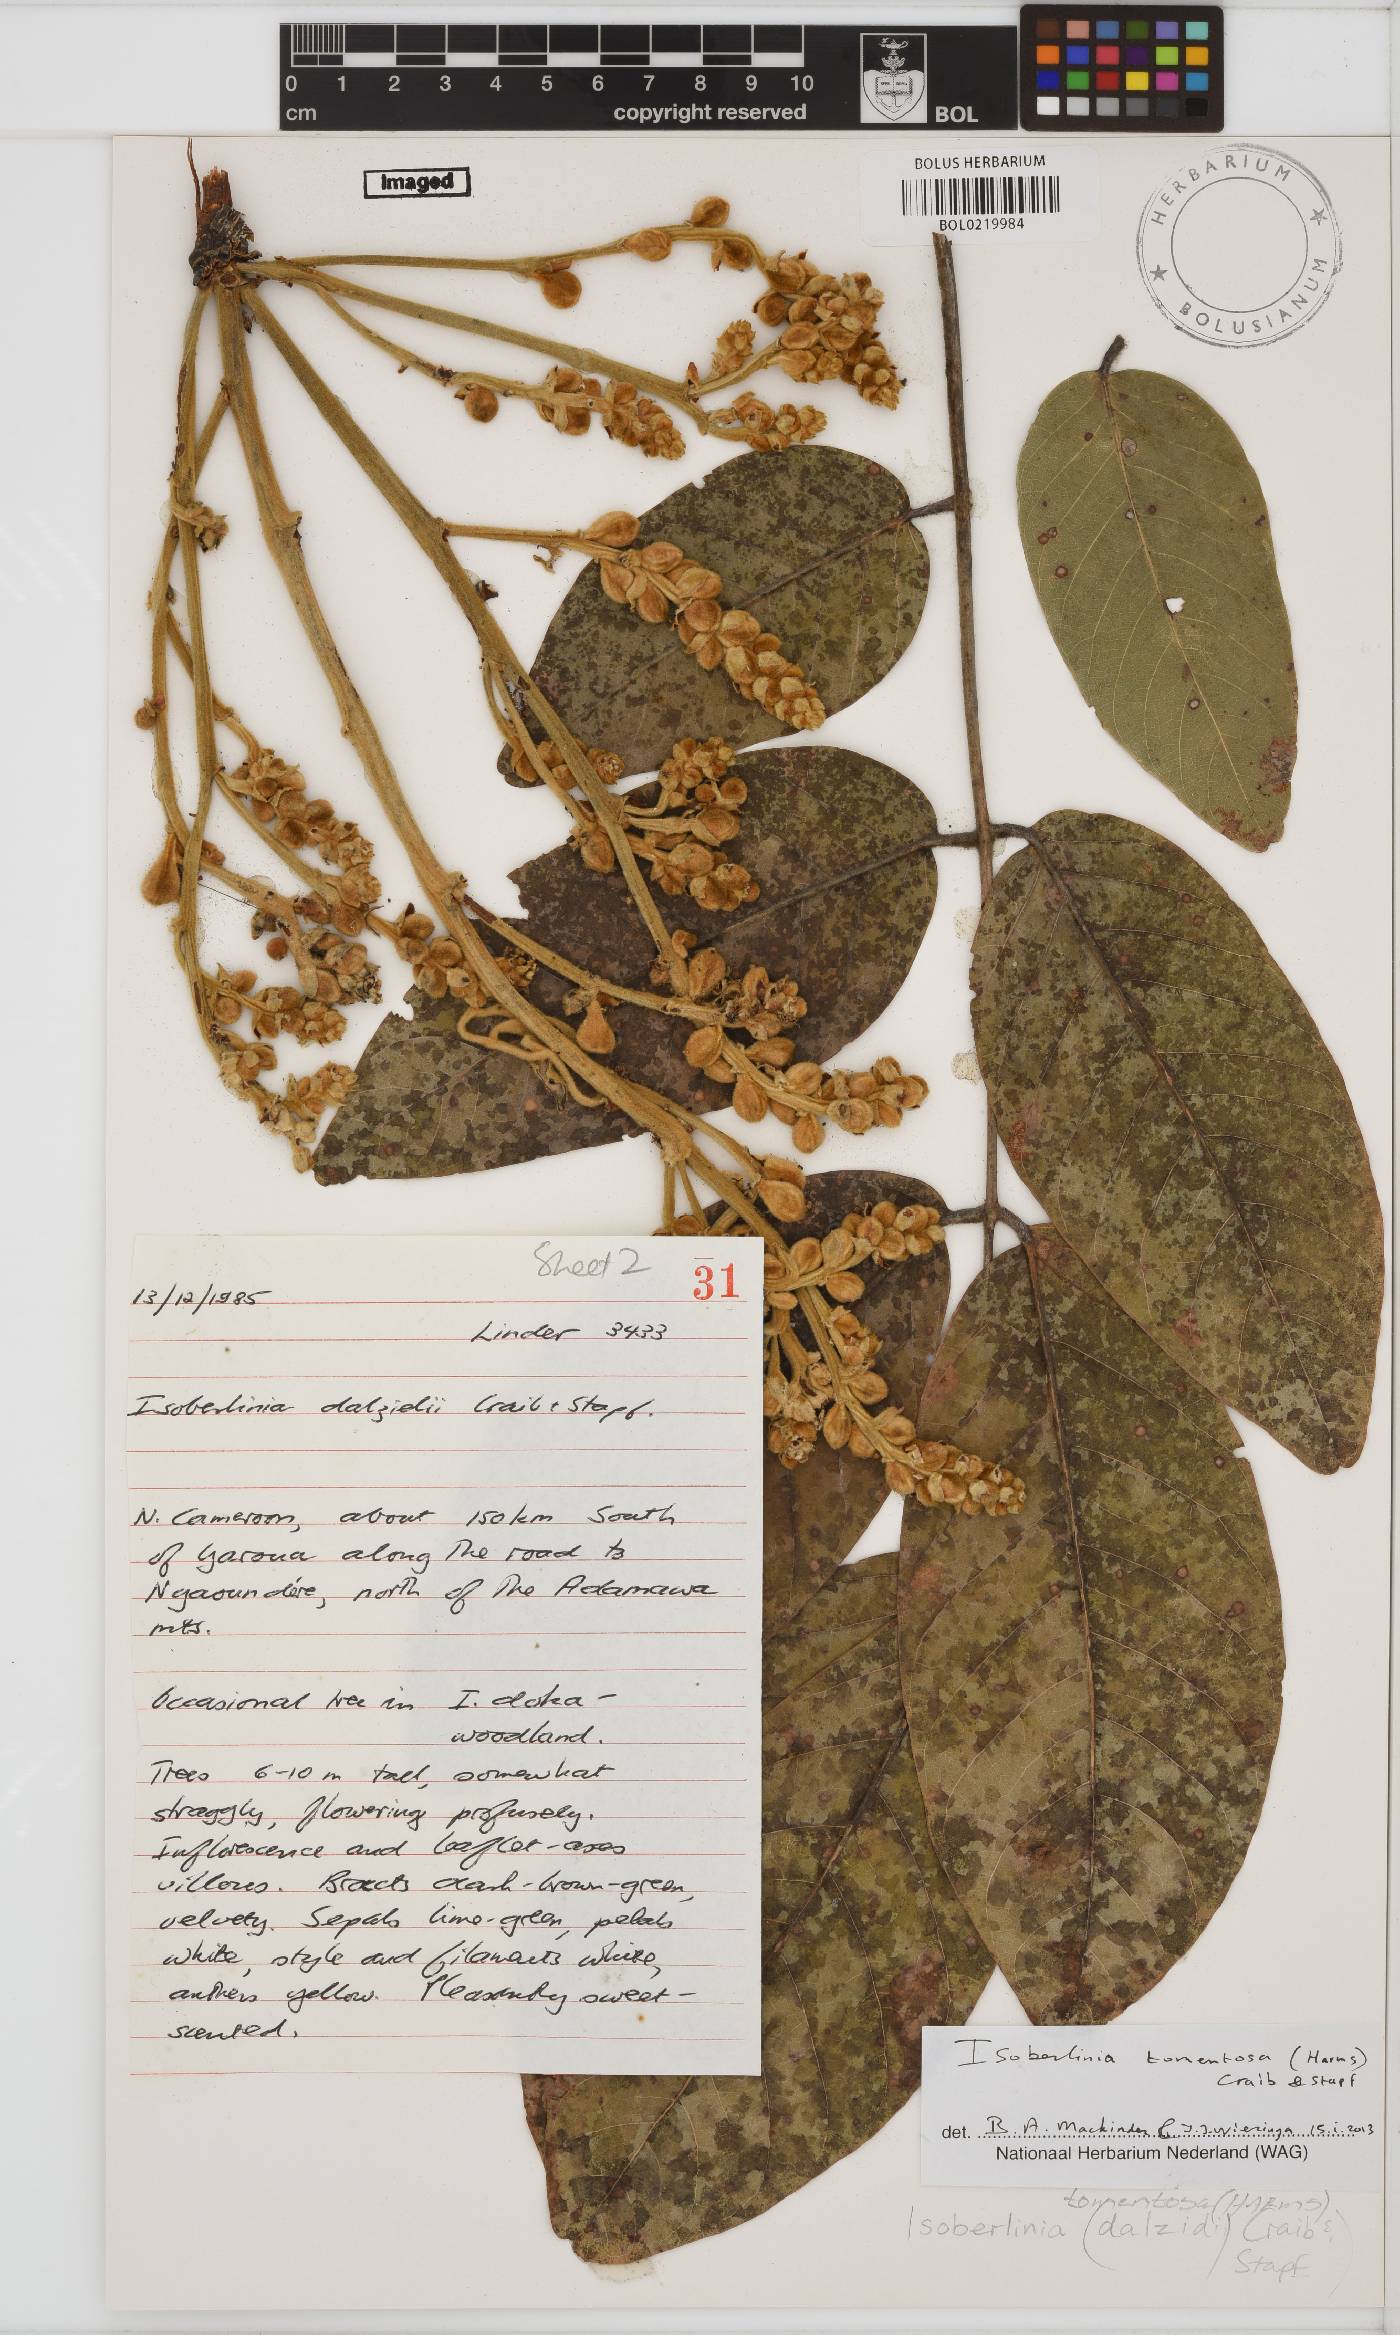 0 1 2 3 4 5 6 7 8 9 10
cm
copyright reserved
BOL
Imaged
BOLUS HERBARIUM
BOL0219984
HERBARIUM
BOLUSIANUM
Sheet 2
31
13/12/1985
Linder 3433
Isoberlinia dalzielii Craib & Stapf.
N. Cameroon, about 150km South
of Garoua along the road to
Ngaoundére, north of the Adamawa
mts.
Occasional tree in I. doka -
woodland.
Trees 6-10 m tall, somewhat
straggly, flowering profusely.
Inflorescence and leaflet-axes
villous. Bracts dark-brown-green,
velvety. Sepals lime-green, petals
white, style and filaments white,
anthers yellow. Pleasantly sweet-
scented.
Isoberlinia tomentosa (Harms)
Craib & Stapf
det. B. A. Mackinder & J.J. Wieringa 15.i.2013
Nationaal Herbarium Nederland (WAG)
tomentosa (Harms)
Isoberlinia (dalzidi) Craib &
Stapf